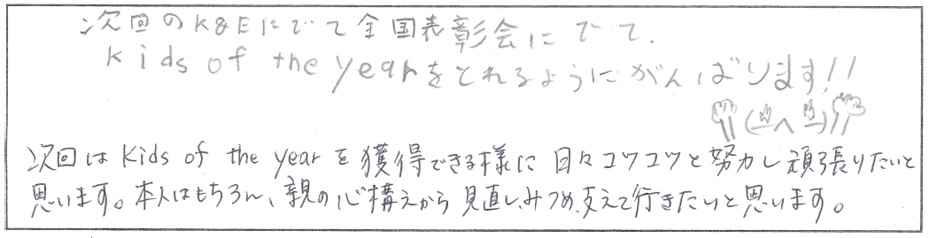 次回のK&Eにでて全国表彰会にでて.
kids of the yearをとれるようにがんばります!!
次回は kids of the year を獲得できる様に 日々コツコツと努力し頑張りたいと
思います。本人はもちろん、親の心構えから見直し、みつめ、支えて行きたいと思います。